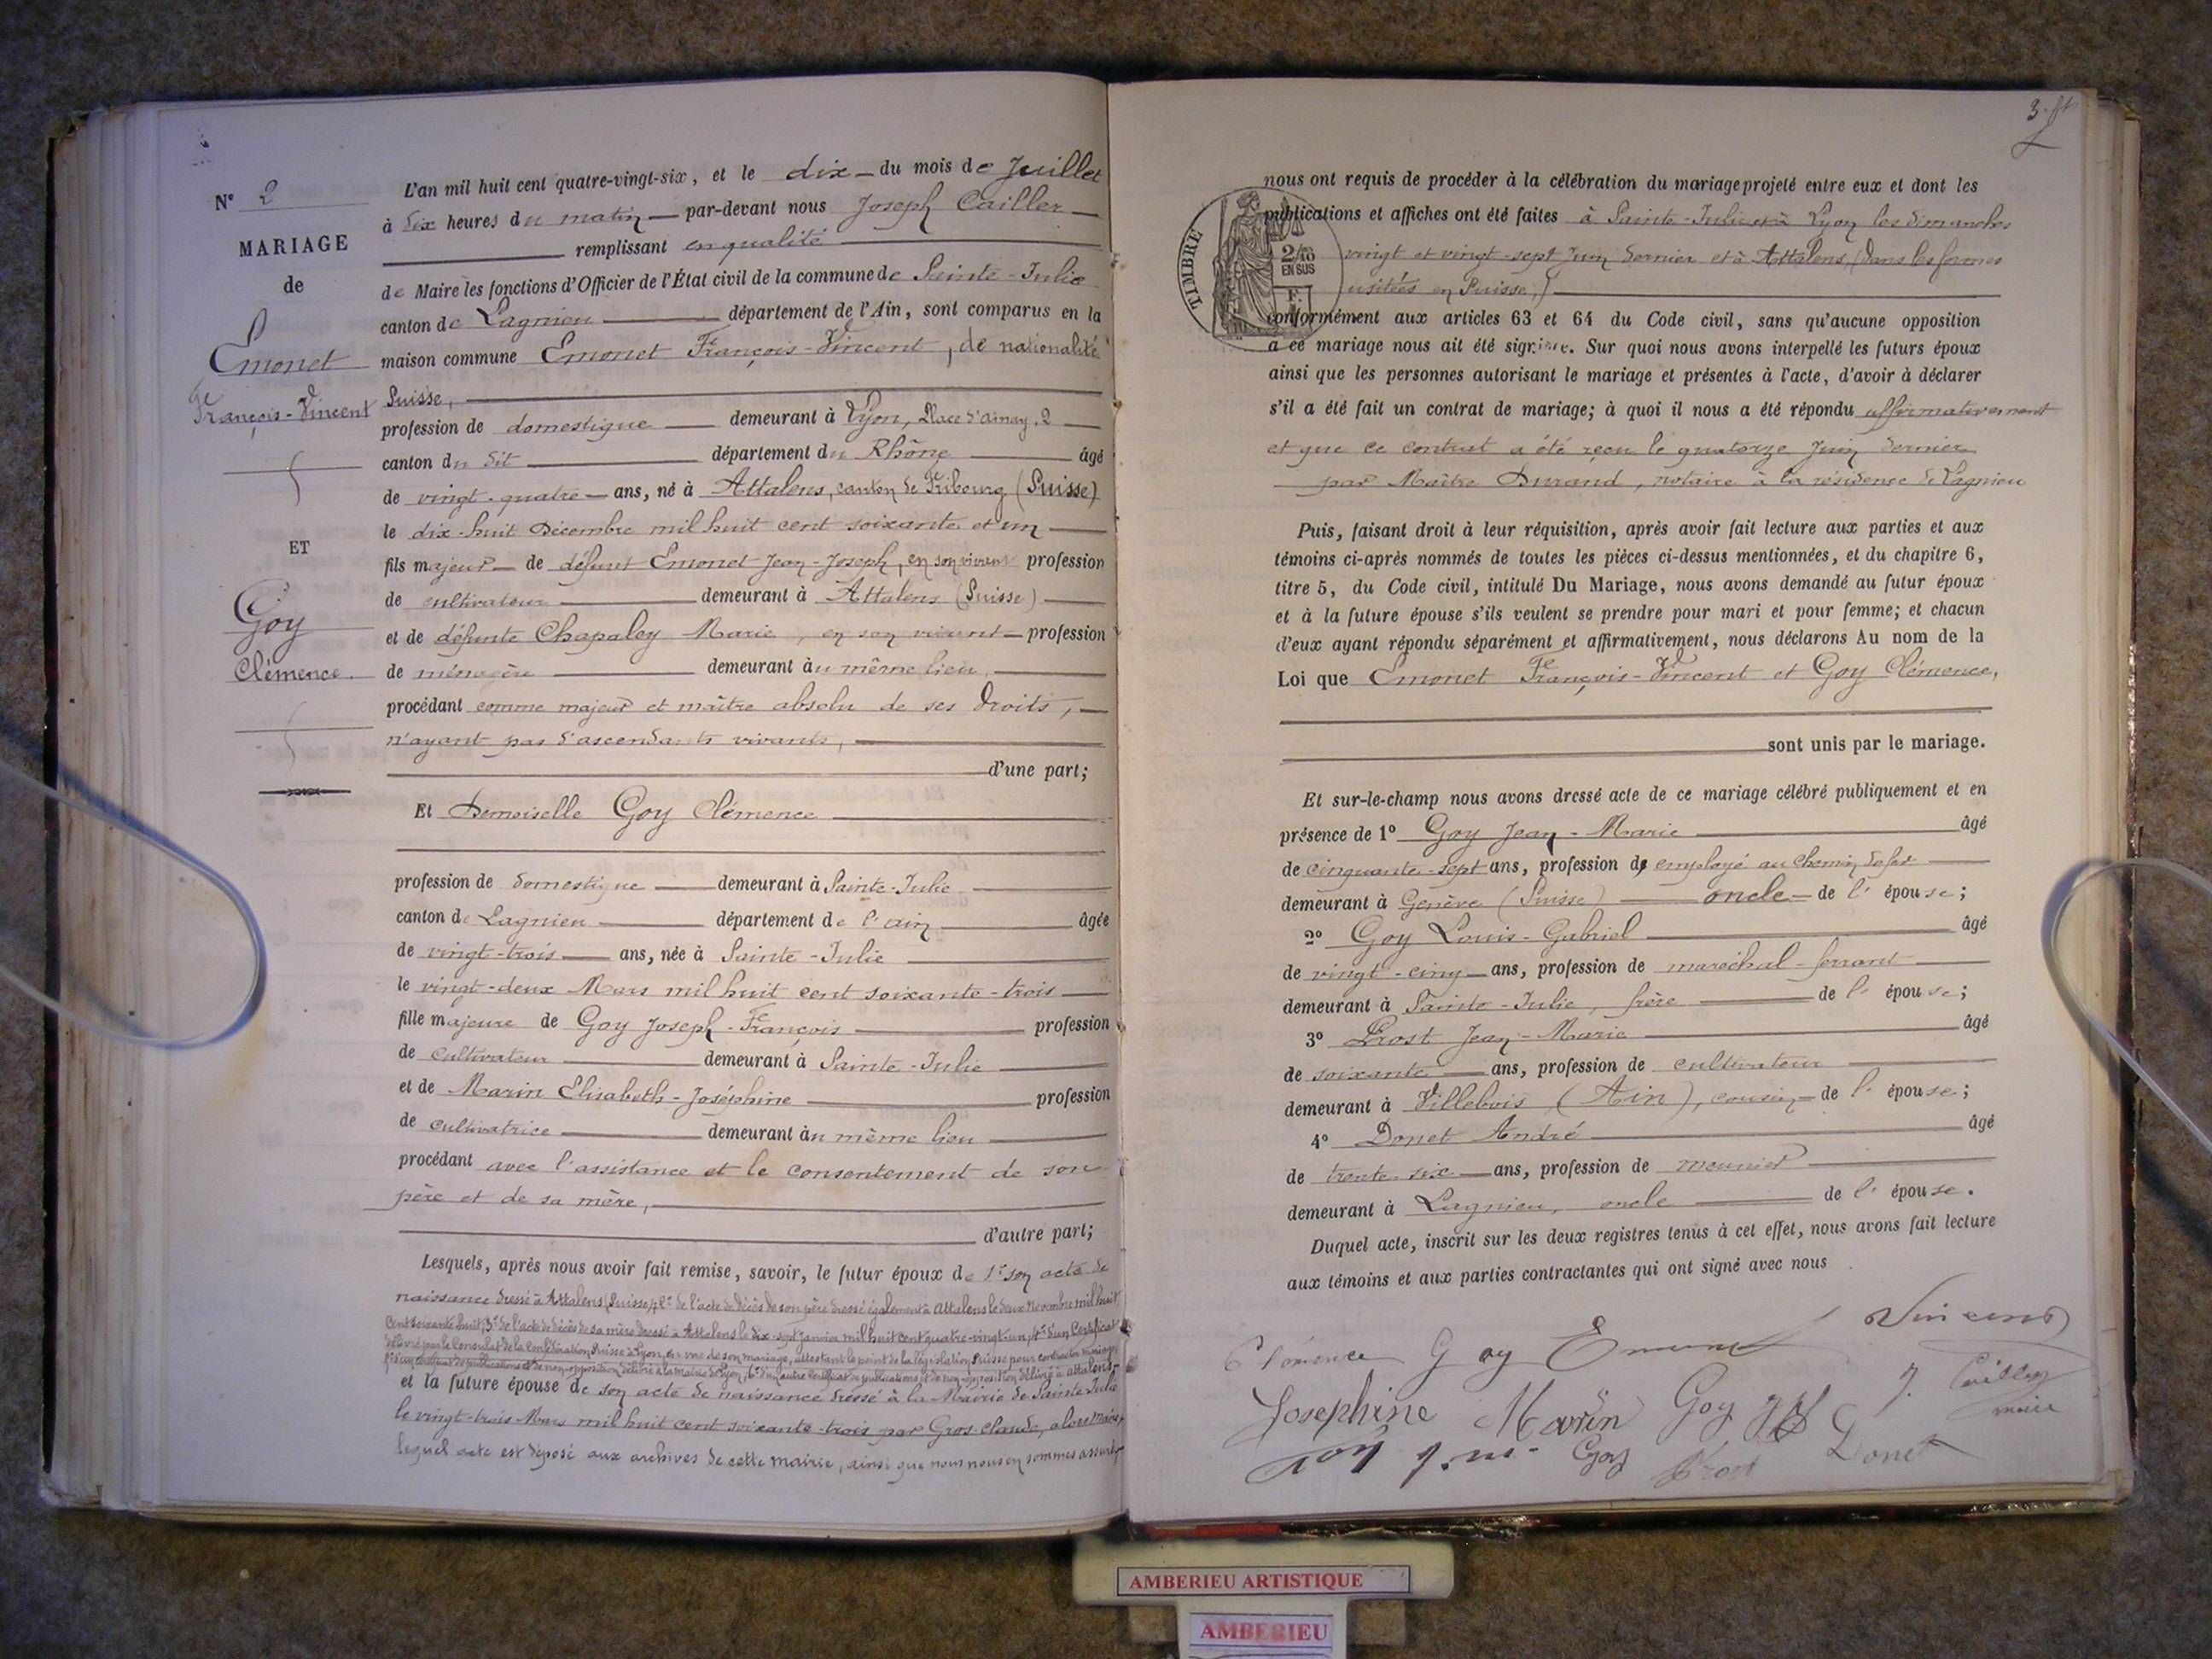 N° 2
MARIAGE
de
Emonet
François-Vincent
ET
Goy
Clémence
L'an mil huit cent quatre-vingt-six, et le dix du mois de Juillet
à dix heures du matin par-devant nous Joseph Cailler
remplissant en qualité
de Maire les fonctions d'Officier de l'État civil de la commune de Sainte-Julie
canton de Lagnieu département de l'Ain, sont comparus en la
maison commune Emonet François-Vincent, de nationalité
Suisse,
profession de domestique demeurant à Lyon, Place d'ainay, 2
canton du dit département du Rhône âgé
de vingt-quatre ans, né à Attalens, canton de Fribourg (Suisse)
le dix-huit Décembre mil huit cent soixante et un
fils majeur de défunt Emonet Jean-Joseph, en son vivant profession
de cultivateur demeurant à Attalens (Suisse)
et de défunte Chapaley Marie, en son vivant profession
de ménagère demeurant au même lieu,
procédant comme majeur et maître absolu de ses droits,
n'ayant pas d'ascendants vivants,
d'une part;
Et Demoiselle Goy Clémence
profession de domestique demeurant à Sainte-Julie
canton de Lagnieu département de l'ain âgée
de vingt-trois ans, née à Sainte-Julie
le vingt-deux Mars mil huit cent soixante-trois
fille majeure de Goy Joseph-François profession
de cultivateur demeurant à Sainte-Julie
et de Marin Elisabeth-Joséphine profession
de cultivatrice demeurant au même lieu
procédant avec l'assistance et le consentement de son
père et de sa mère,
d'autre part;
Lesquels, après nous avoir fait remise, savoir, le futur époux de 1° son acte de
naissance dressé à Attalens (Suisse), 2° de l'acte de décès de son père dressé également à Attalens le deux Novembre mil huit
cent soixante huit, 3° de l'acte de décès de sa mère dressé à Attalens le dix-sept janvier mil huit cent quatre-vingt-un, 4° d'un Certificat
délivré par le Consulat de la Confédération Suisse à Lyon, en vue de son mariage, attestant le point de la législation Suisse pour contracter mariage,
5° d'un certificat de publications et de non-opposition délivré à la mairie de Lyon, 6° d'un autre certificat de publications et de non-opposition délivré à Attalens,
et la future épouse de son acte de naissance dressé à la Mairie de Sainte Julie
le vingt-trois Mars mil huit cent soixante-trois par Gros-claude, alors maire,
lequel acte est déposé aux archives de cette mairie, ainsi que nous nous en sommes assuré,
3
TIMBRE
2/10
EN SUS
F.
nous ont requis de procéder à la célébration du mariage projeté entre eux et dont les
publications et affiches ont été faites à Sainte-Julie et à Lyon les dimanches
vingt et vingt-sept Juin dernier et à Attalens, (dans les formes
usitées en Suisse,)
conformément aux articles 63 et 64 du Code civil, sans qu'aucune opposition
à ce mariage nous ait été signifiée. Sur quoi nous avons interpellé les futurs époux
ainsi que les personnes autorisant le mariage et présentes à l'acte, d'avoir à déclarer
s'il a été fait un contrat de mariage; à quoi il nous a été répondu affirmativement
et que ce contrat a été reçu le quatorze Juin dernier
par Maître Durand, notaire à la résidence de Lagnieu
Puis, faisant droit à leur réquisition, après avoir fait lecture aux parties et aux
témoins ci-après nommés de toutes les pièces ci-dessus mentionnées, et du chapitre 6,
titre 5, du Code civil, intitulé Du Mariage, nous avons demandé au futur époux
et à la future épouse s'ils veulent se prendre pour mari et pour femme; et chacun
d'eux ayant répondu séparément et affirmativement, nous déclarons Au nom de la
Loi que Emonet François-Vincent et Goy Clémence,
sont unis par le mariage.
Et sur-le-champ nous avons dressé acte de ce mariage célébré publiquement et en
présence de 1° Goy Jean-Marie âgé
de cinquante-sept ans, profession de employé au Chemin de fer
demeurant à Genève (Suisse) oncle de l'épouse;
2° Goy Louis-Gabriel âgé
de vingt-cinq ans, profession de maréchal-ferrant
demeurant à Sainte-Julie, frère de l'épouse;
3° Prost Jean-Marie âgé
de soixante ans, profession de cultivateur
demeurant à Villebois (Ain), cousin de l'épouse;
4° Donet André âgé
de trente-six ans, profession de meunier
demeurant à Lagnieu, oncle de l'épouse.
Duquel acte, inscrit sur les deux registres tenus à cet effet, nous avons fait lecture
aux témoins et aux parties contractantes qui ont signé avec nous
Clémence Goy Emonet Vincent
Josephine Marin Goy J. Cailler
maire
Goy J. M. Goy Prost Donet
AMBERIEU ARTISTIQUE
AMBERIEU